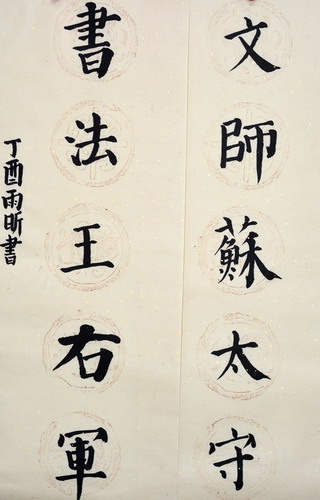 文師蘇太守
書法王右軍
丁酉雨昕書